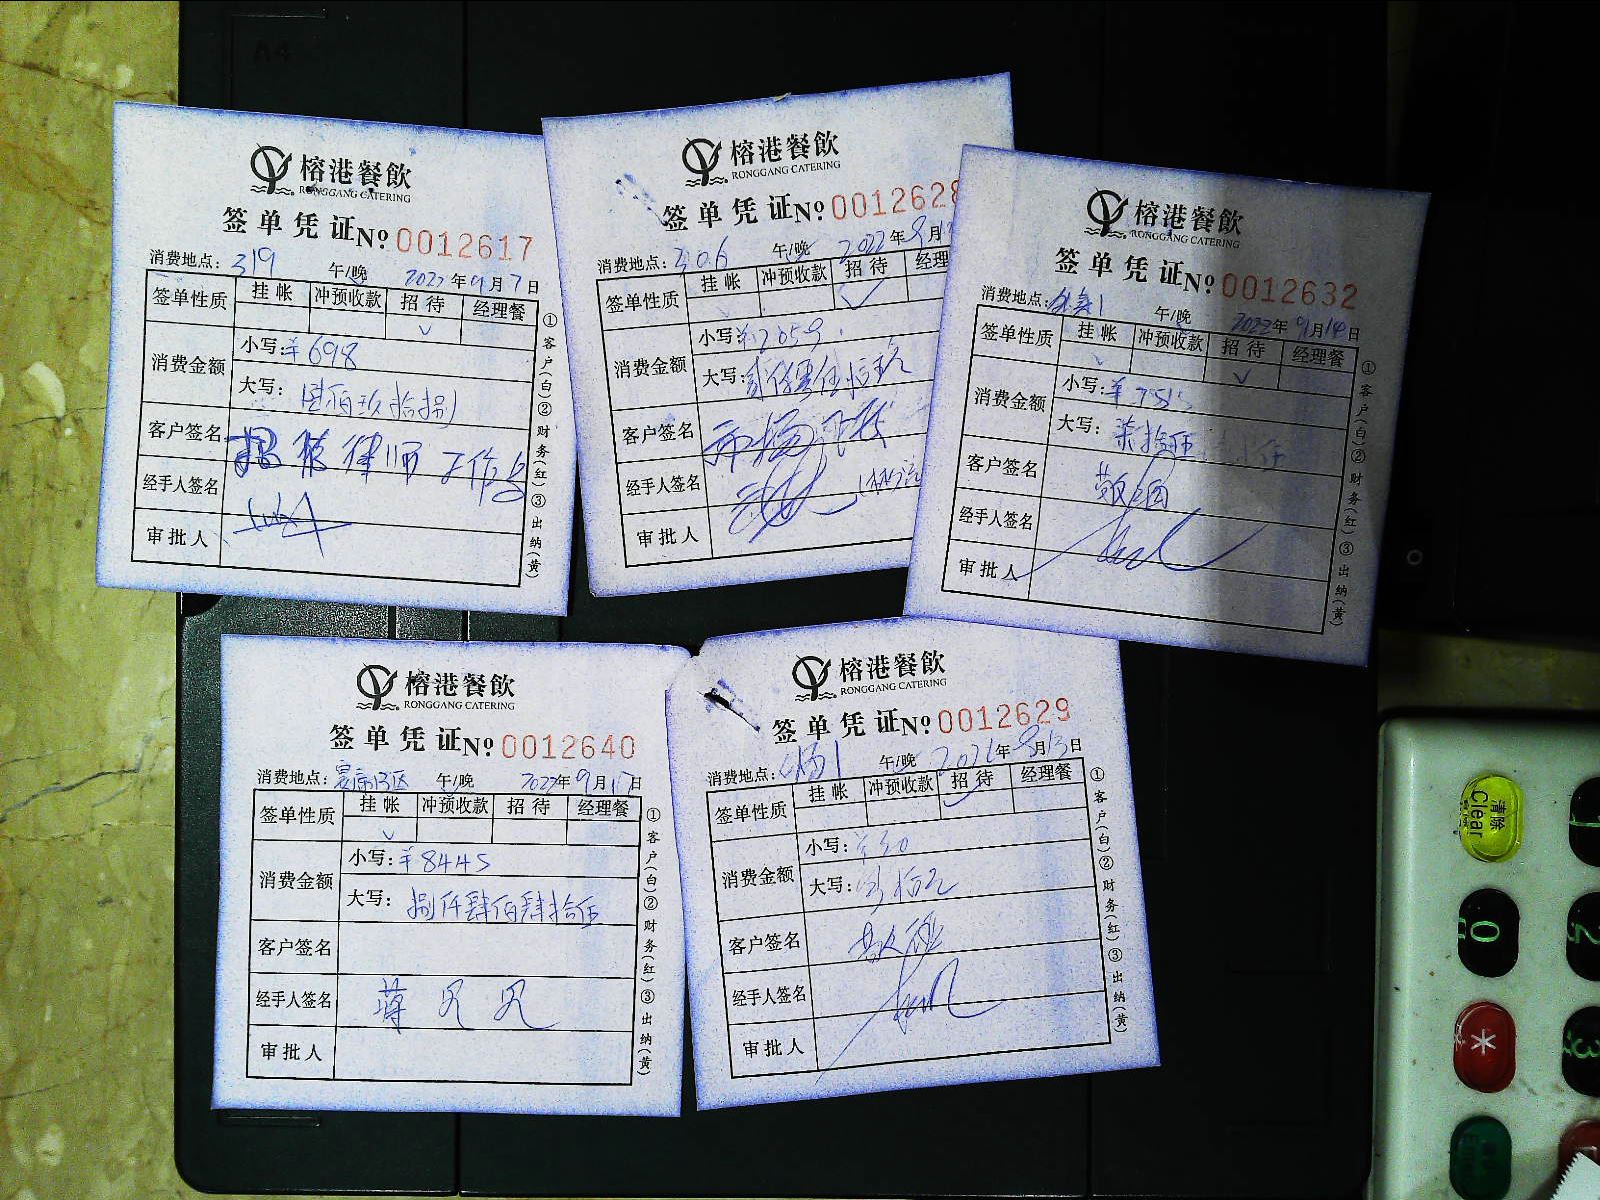 A4
榕港餐飲
RONGGANG CATERING
签单凭证 No 0012617
消费地点: 319 午/晚 2022年9月7日
签单性质 挂帐 冲预收款 招待 经理餐
✓
消费金额 小写: ¥698
大写: 陆佰玖拾捌
客户签名 律师工作
经手人签名
审批人
①客户(白)②财务(红)③出纳(黄)
榕港餐飲
RONGGANG CATERING
签单凭证 No 0012628
消费地点: 306 午/晚 2022年9月
签单性质 挂帐 冲预收款 招待 经理
✓
消费金额 小写: ¥2059
大写:
客户签名 市场
经手人签名
审批人
榕港餐飲
RONGGANG CATERING
签单凭证 No 0012632
消费地点: 午/晚 2022年9月14日
签单性质 挂帐 冲预收款 招待 经理餐
✓
消费金额 小写: ¥
大写: 柒拾伍
客户签名
经手人签名
审批人
①客户(白)②财务(红)③出纳(黄)
榕港餐飲
RONGGANG CATERING
签单凭证 No 0012640
消费地点: 午/晚 2022年9月17日
签单性质 挂帐 冲预收款 招待 经理餐
✓
消费金额 小写: ¥8445
大写: 捌仟肆佰肆拾伍
客户签名
经手人签名
审批人
①客户(白)②财务(红)③出纳(黄)
榕港餐飲
RONGGANG CATERING
签单凭证 No 0012629
消费地点: 午/晚 年 月13日
签单性质 挂帐 冲预收款 招待 经理餐
✓
消费金额 小写: ¥30
大写: 拾元
客户签名
经手人签名
审批人
①客户(白)②财务(红)③出纳(黄)
清除
Clear
1
0
2
*
3